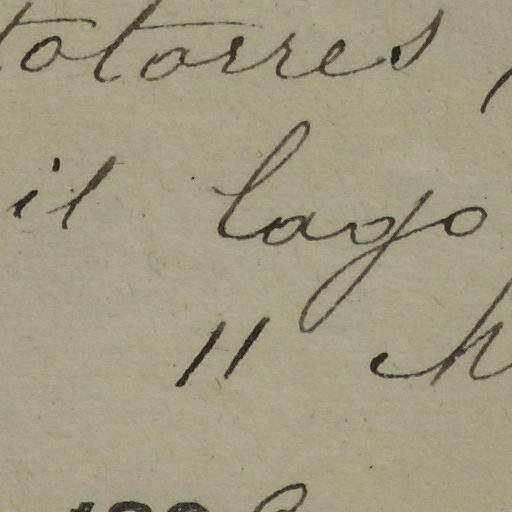 totorres,
il lago
11